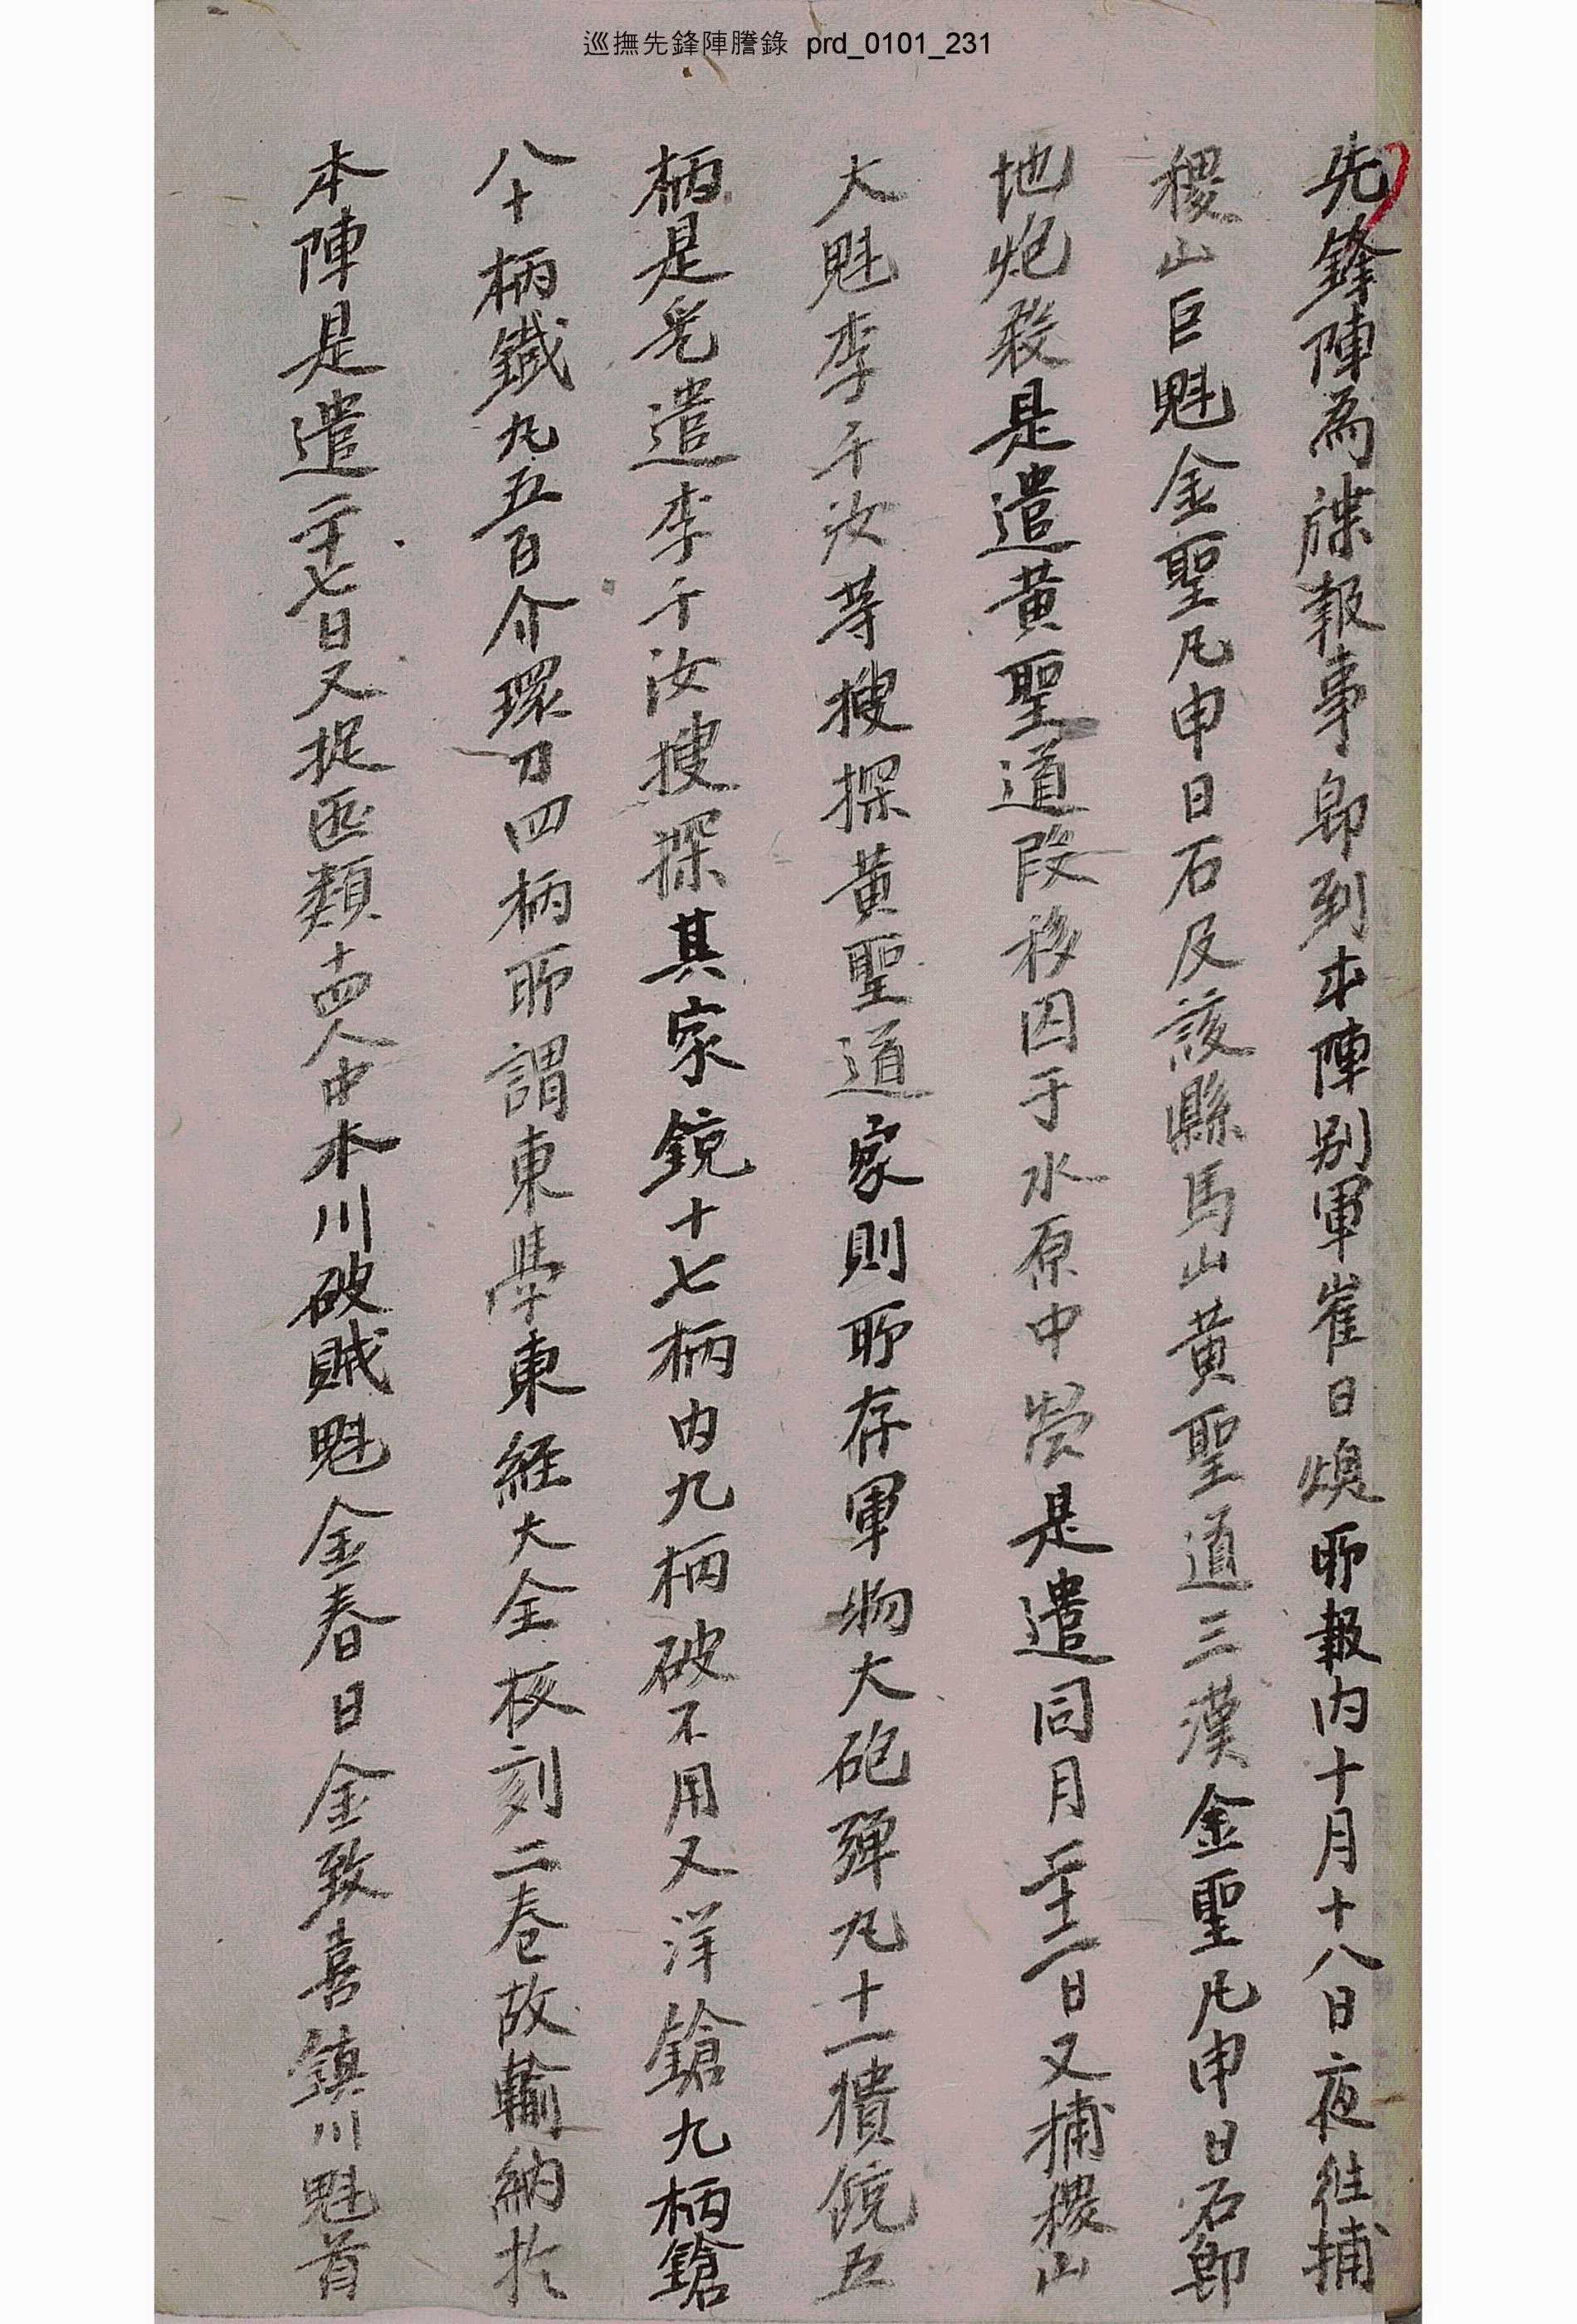 巡撫先鋒陣謄錄 prd_0101_231
先鋒陣爲牒報事卽到本陣別軍崔日煥所報內十月十八日夜往捕
稷山巨魁金聖凡申日石及該縣馬山黃聖道三漢金聖凡申日石卽
地炮殺是遣黃聖道段移囚于水原中營是遣同月二十二日又捕稷山
大魁李千汝等搜探黃聖道家則所存軍物大砲彈丸十一樻銃五
柄是乎遣李千汝搜探其家銃十七柄內九柄破不用又洋鎗九柄鎗
八十柄鐵丸五百介環刀四柄所謂東學東經大全板刻二卷故輸納於
本陣是遣二十七日又捉匪類十四人中木川破賊魁金春日金致喜鎭川魁首